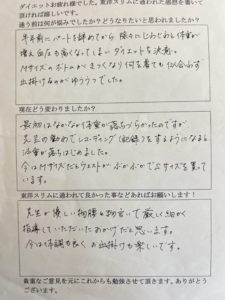 ダイエットお疲れ様でした。東洋スリムに通われた感想を書いて
頂ければ嬉しいです。
通う前は何が悩みでしたか？どうなりたいと思われましたか？
半年前にパートを辞めてから 徐々にじわじわ体重が
増え血圧も高くなってしまいダイエットを決意。
Mサイズのボトムがきつくなり何を着ても似合わず
出掛けるのがゆううつでした。
現在どう変わりましたか？
最初はなかなか体重が落ちづらかったのですが
先生の勧めでレコーディング（記録）をするようになると
体重が落ちはじめました。
今はMサイズだとウエストがぶかぶかでSサイズを買って
います。
東洋スリムに通われて良かった事などあればお願いします！
先生が優しい物腰と物言いで厳しく細かく
指導していただいたおかげだと思います。
今は体調も良く お出掛けも楽しいです。
貴重なご意見を元にこれからも勉強させて頂きます。ありがとう
ございます。